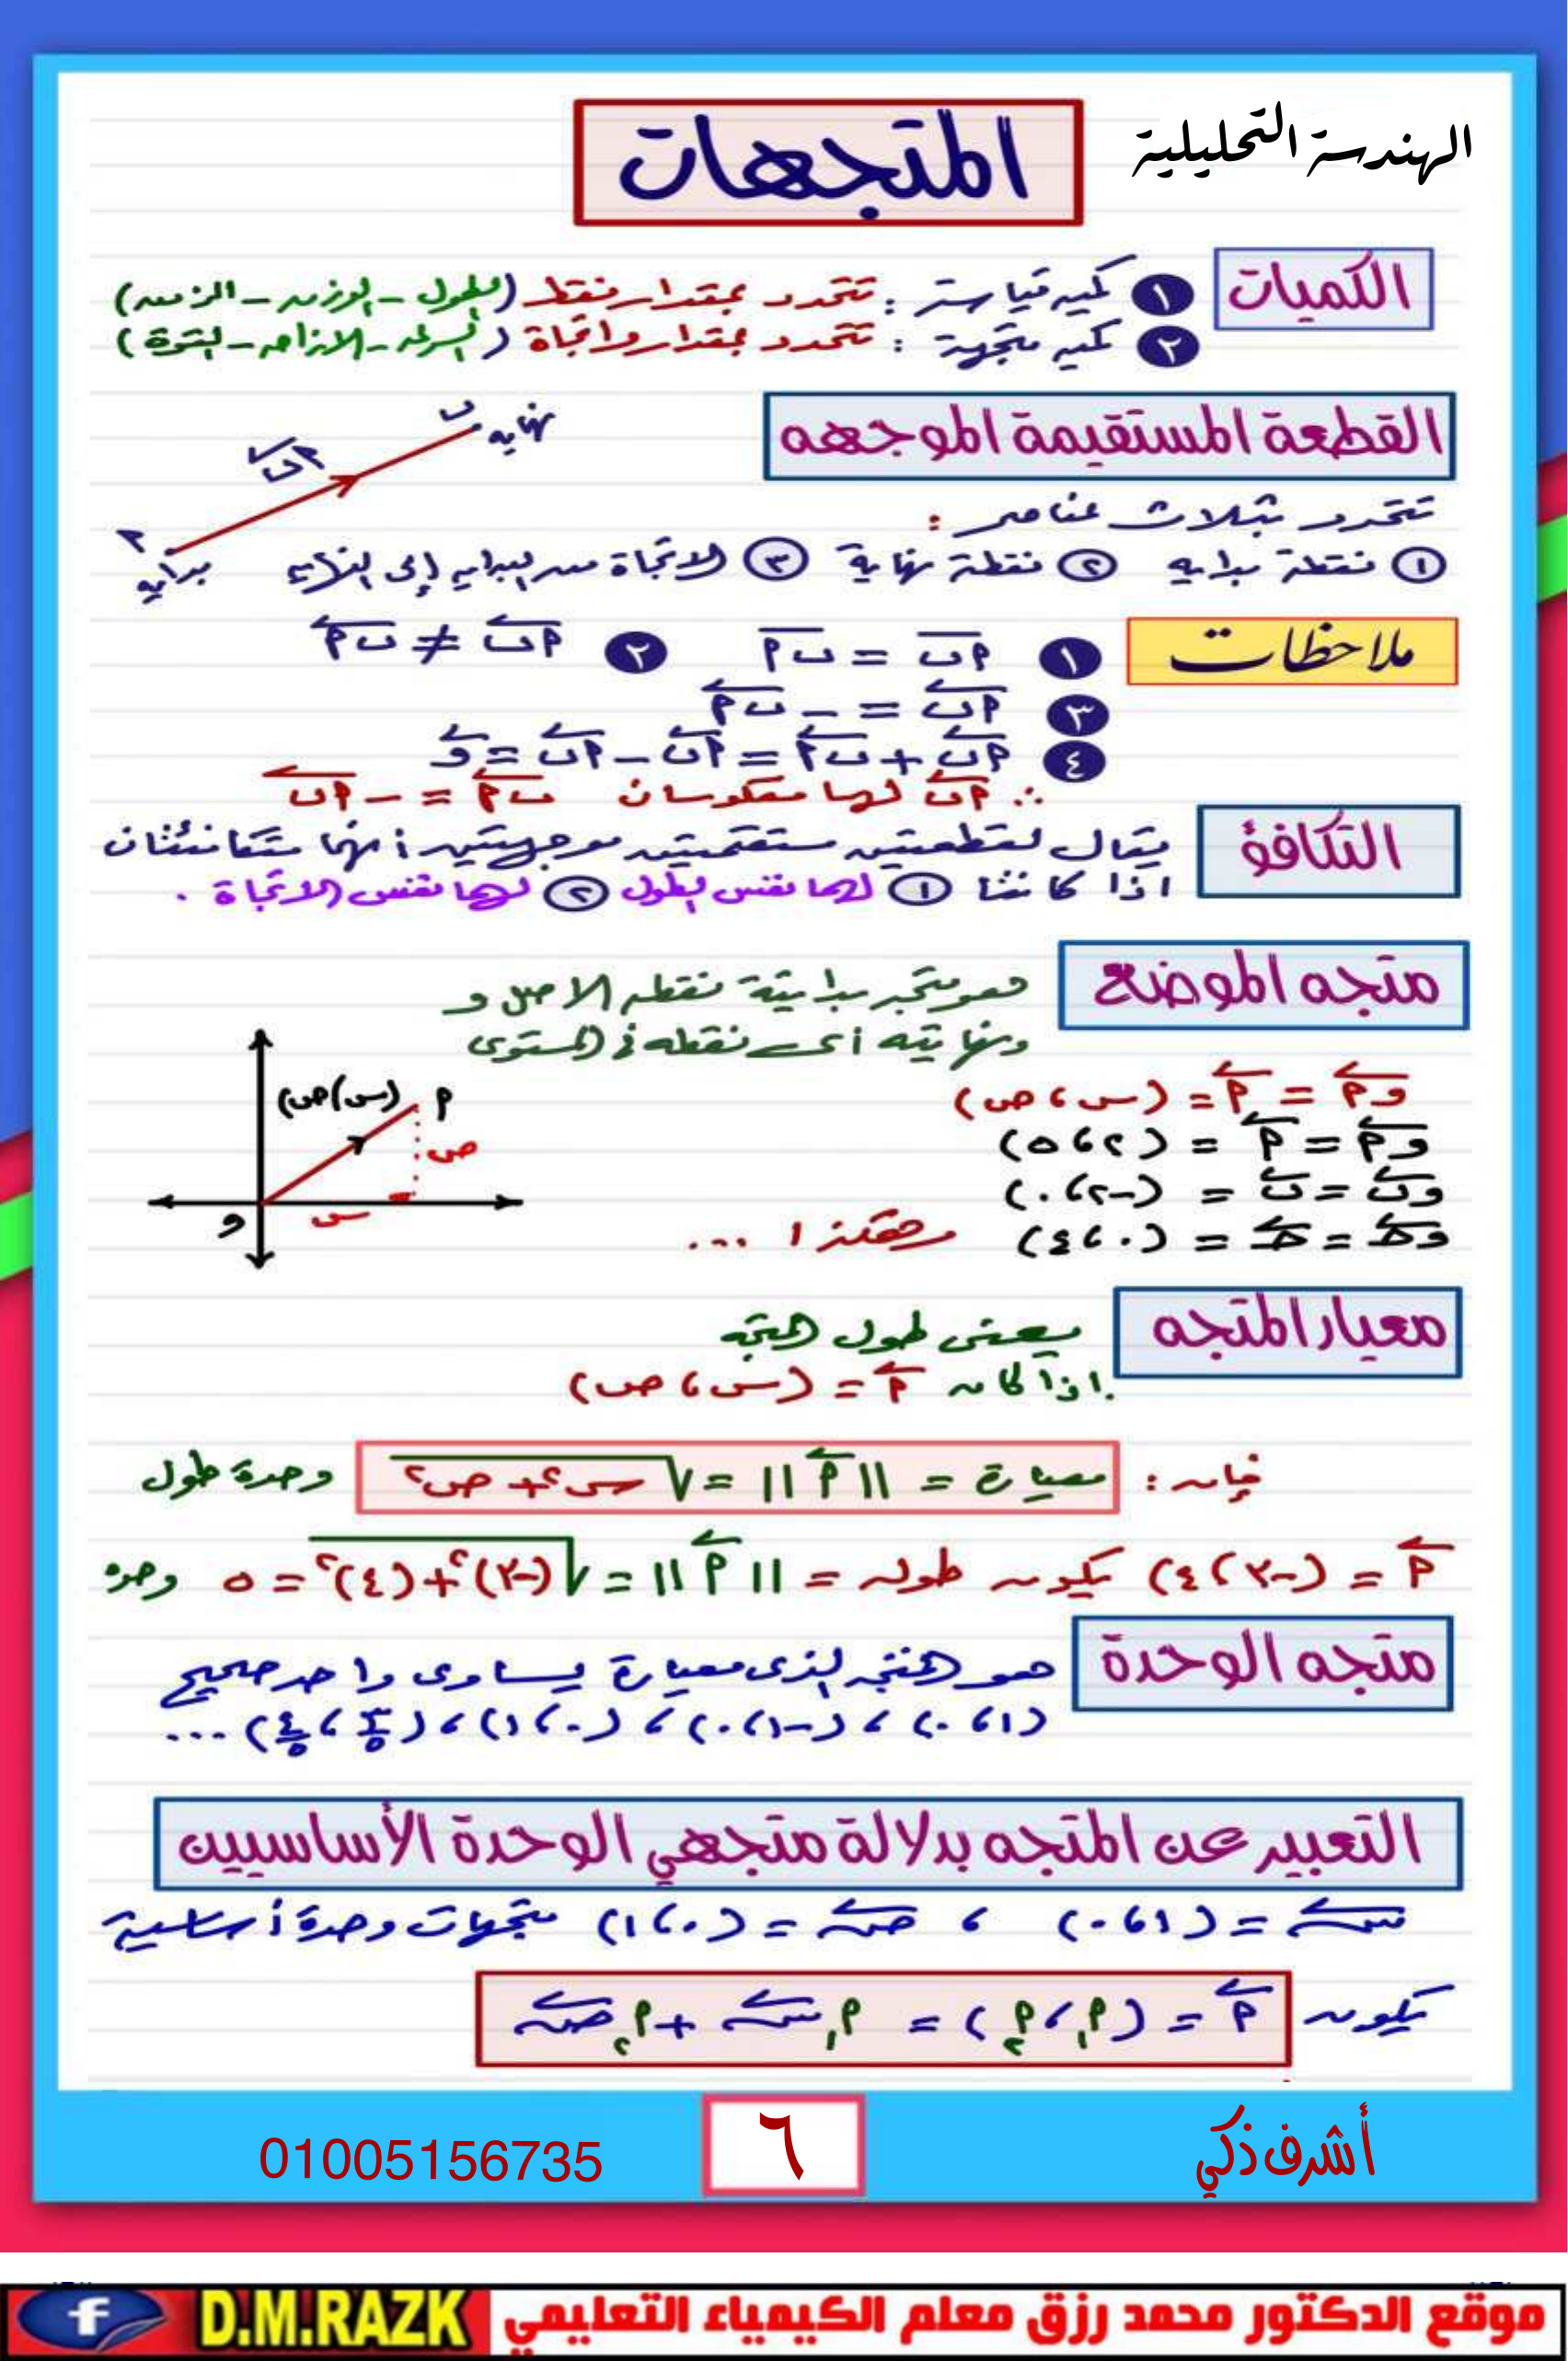 الهندسة التحليلية
المتجهات
الكميات
١ كميه قياسية : تتحدد بمقدار فقط (الطول - الوزن - الزمن)
٢ كميه متجهة : تتحدد بمقدار واتجاة (السرعه - الازاحه - القوة)
القطعة المستقيمة الموجهه
نهايه ب
أب
أ بدايه
تتحدد بثلاث عناصر :
١ نقطة بدايه ٢ نقطة نهاية ٣ الاتجاة من البدايه إلى النهايه
ملاحظات
١ أب = ب أ ٢ أب ≠ ب أ
٣ أب = - ب أ
٤ أب + ب أ = أب - أب = و
∴ أب لها معكوسان ب أ = - أب
التكافؤ
يقال لقطعتين مستقمتين موجهتين أنهما متكافئتان
اذا كانتا ١ لهما نفس الطول ٢ لهما نفس الاتجاة .
متجه الموضع
هو متجه بدايتة نقطه الاصل و
ونهايته أى نقطه فى المستوى
(س، ص) أ
ص
س
و
وأ = أ = (س ، ص)
وأ = أ = (٢ ، ٥)
وب = ب = (-٢ ، ٠)
وجـ = جـ = (٠ ، ٤) وهكذا ...
معيار المتجه
يعنى طول المتجه
اذا كان أ = (س ، ص)
فإن : معيارة = ||أ|| = √س٢ + ص٢ وحدة طول
أ = (-٣ ، ٤) يكون طوله = ||أ|| = √(-٣)٢ + (٤)٢ = ٥ وحده
متجه الوحدة
هو المتجه الذى معيارة يساوى واحد صحيح
(١ ، ٠) ، (-١ ، ٠) ، (٠ ، ١) ، (٣/٥ ، ٤/٥) ...
التعبير عن المتجه بدلالة متجهي الوحدة الأساسيين
س = (١ ، ٠) ، ص = (٠ ، ١) متجهات وحدة أساسية
يكون أ = (أ١ ، أ٢) = أ١ س + أ٢ ص
أشرف ذكي
٦
01005156735
موقع الدكتور محمد رزق معلم الكيمياء التعليمي D.M.RAZK f